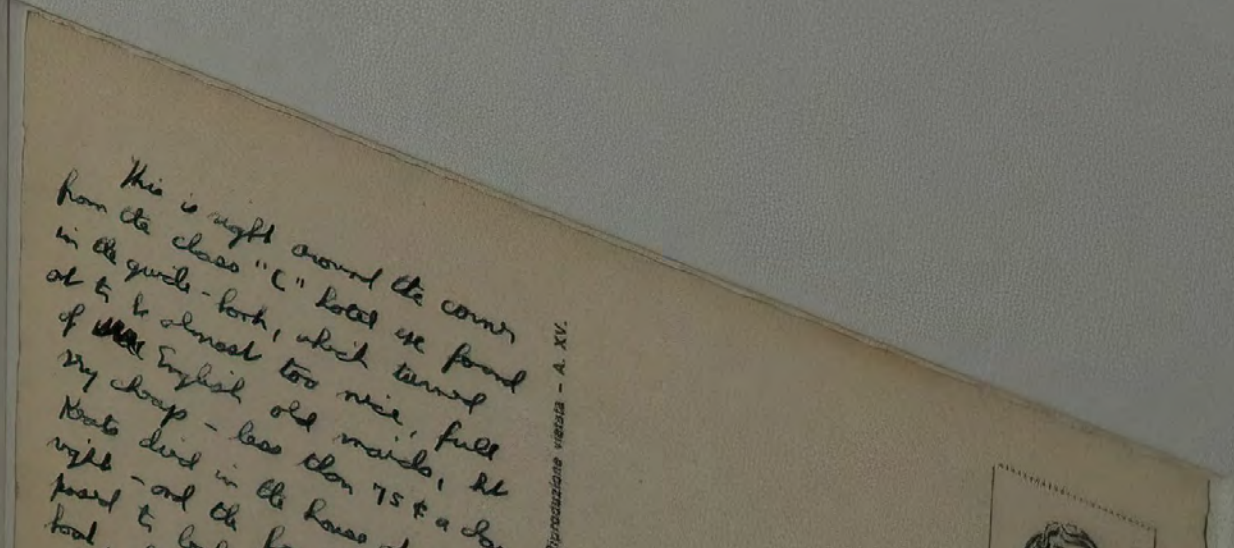 This is right around the corner
from the class "C" hotel we found
in the guide-book, which turned
out to be almost too nice, full
of English old maids, but
very cheap - less than 75 ¢ a day
Keats died in the house
right - and the
posed to
Riproduzione vietata - A. XV.